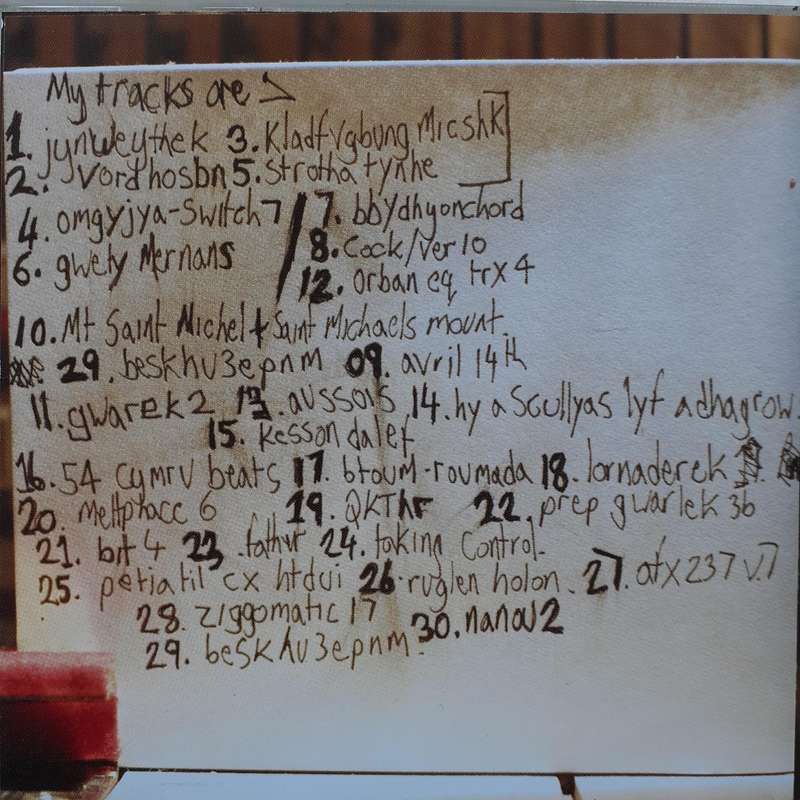 My tracks are >
1. jynweythek 3. Kladfvgbung Micshk
2. vordhosbn 5. strotha tynhe
4. omgyjya-Switch7 / 7. bbydhyonchord
6. gwely Mernans / 8. Cock/Ver10
12. orban eq trx 4
10. Mt Saint Michel + Saint Michaels mount.
29. beskhu3epnm 09. avril 14th
11. gwarek2 13. aussois 14. hy a Scullyas lyf adhagrow.
15. kesson dalef
16. 54 cymru beats 17. btoum-roumada 18. lornaderek
20. meltphace 6 19. QKThr 22. prep gwarlek 3b
21. bit 4 23. father 24. taking Control.
25. petiatil cx htdui 26. ruglen holon. 27. afx 237 v.7
28. ziggomatic 17
29. beskhu3epnm. 30. nanou2